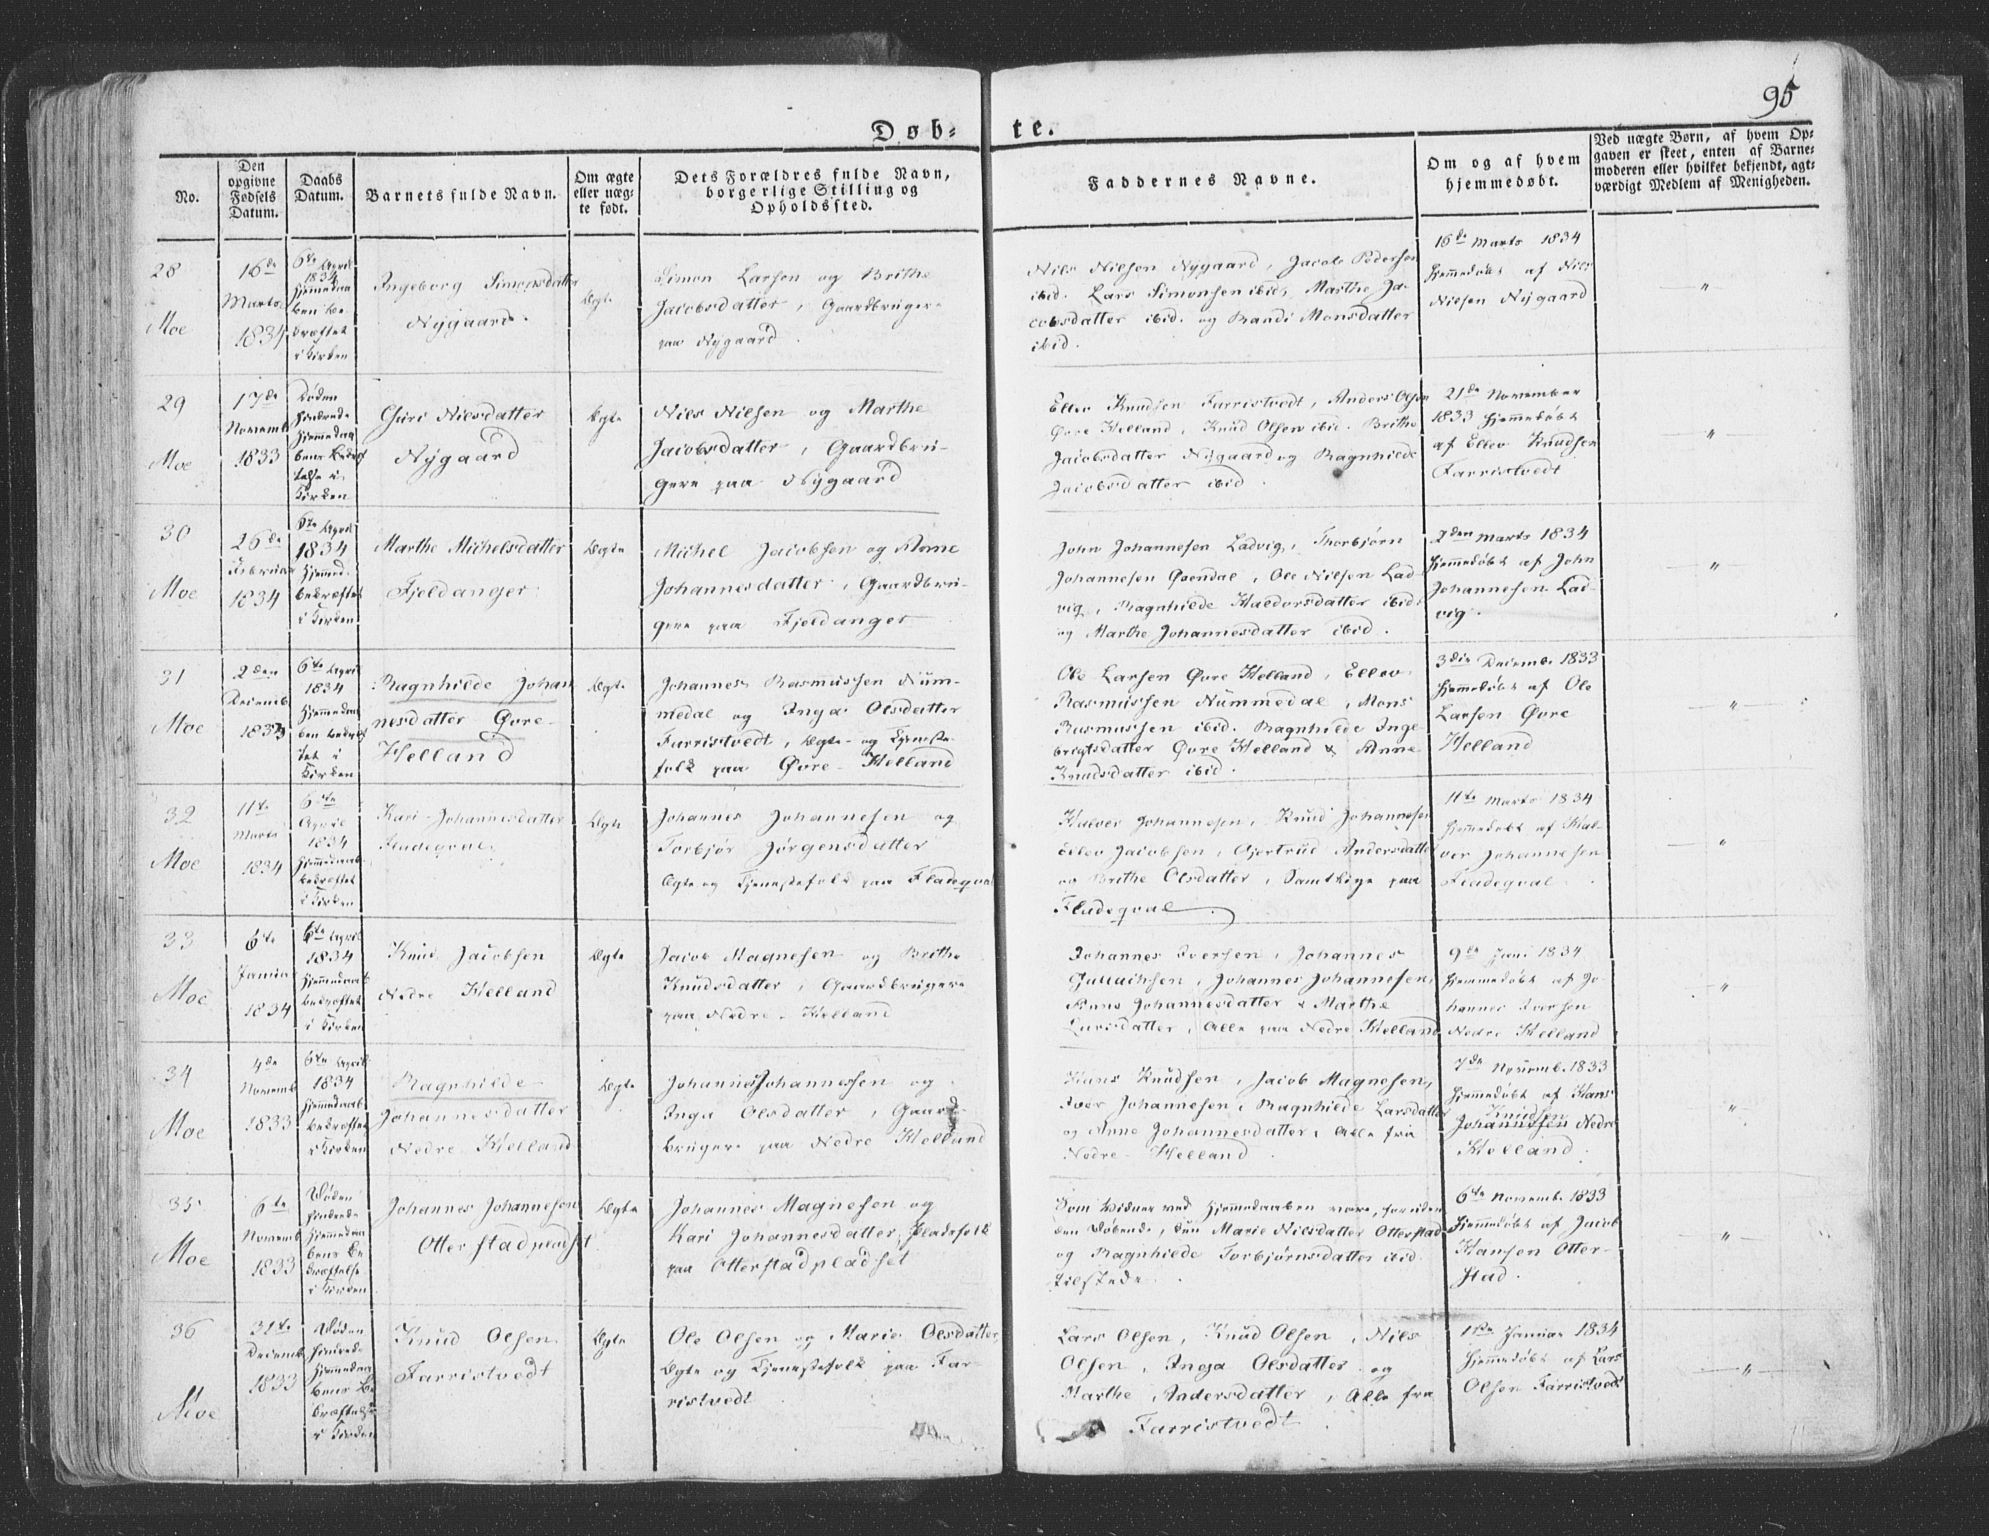 95
Døb-
te.
No.
Den opgivne Fødsels Datum.
Daabs Datum.
Barnets fulde Navn.
Om ægte eller uægte født.
Dets Forældres fulde Navn, borgerlige Stilling og Opholdssted.
Faddernes Navne.
Om og af hvem hjemmedøbt.
Ved uægte Børn, af hvem Opgaven er skeet, enten af Barnemoderen eller hvilket bekjendt, agtværdigt Medlem af Menigheden.
28
Moe
16de
Marts
1834
6te April
1834
hjemmedaa
ben be
kræftet
i Kirken
Ingeborg Simonsdatter
Nÿgaard.
Ægte
Simon Larsen og Brithe
Jacobsdatter, Gaardbruger-
paa Nÿgaard.
Nils Nielsen Nÿgaard, Jacob Pedersen
ibid. Lars Simonsen ibid, Marthe Ja-
cobsdatter ibid. og Randi Monsdatter
ibid.
16de Marts 1834
hjemmedøbt af Nils
Nielsen Nÿgaard
"
29
Moe
17de
Novemb
1833
Døden
hindrede
hjemmedaa
bens Bekræf
telse i
Kirken
Guri Nilsdatter
Nÿgaard
Ægte
Nils Nilsen og Marthe
Jacobsdatter, Gaardbru-
gere paa Nÿgaard
Ellev Knudsen Farristvedt, Anders Olsen
Øvre Helland, Knud Olsen ibid. Brithe
Jacobsdatter Nÿgaard og Ragnhilde
Jacobsdatter ibid.
21de November
1833 hjemmedøbt
af Ellev Knudsen
Farristvedt
"
30
Moe
26de
Februar
1834
6te April
1834
hjemmed.
bekræftet
i Kirken
Marthe Michelsdatter
Fjeldanger
Ægte
Michel Jacobsen og Anne
Johannesdatter, Gaardbru-
gere paa Fjeldanger
John Johannesen Ladvig, Thorbjørn
Johannesen Øvendal, Ole Nilsen Lad
vig, Ragnhilde Haldorsdatter ibid.
og Marthe Johannesdatter ibid.
2den Marts 1834
hjemmedøbt af John
Johannesen Lad-
vig.
"
31
Moe
2den
Decemb
1833
6te April
1834
hjemmedaa
ben bekræf
tet i
Kirken
Ragnhilde Johan
nesdatter Øvre-
Helland
Ægte
Johannes Rasmussen Num-
medal og Inga Olsdatter
Farristvedt, Ægte- og Tjeneste-
folk paa Øvre-Helland
Ole Larsen Øvre Helland, Ellev
Rasmussen Nummedal, Mons
Rasmussen ibid. Ragnhilde Inge
brigtsdatter Øvre Helland & Anne
Knudsdatter ibid.
3die Decemb. 1833
hjemmedøbt af Ole
Larsen Øvre
Helland
"
32
Moe
11te
Marts
1834
6te
April
1834
hjemmedaab
bekræftet
i Kirken
Kari Johannesdatter
Fladeqval
Ægte
Johannes Johannesen og
Torbjør Jørgensdatter
Ægte og Tjenestefolk paa Fladeqval
Halvor Johannesen, Knud Johannesen
Ellev Jacobsen, Gjertrud Andersdatter
og Brithe Olsdatter, samtlige paa
Fladeqval.
11te Marts 1834
hjemmedøbt af Hal-
vor Johannesen
Fladeqval
"
33
Moe
6te
Januar
1834
6te April
1834
hjemmedaab
bekræftet
i Kirken
Knud Jacobsen
Nedre Helland
Ægte
Jacob Magnesen og Brithe
Knudsdatter, Gaardbrugere
paa Nedre-Helland
Johannes Iversen, Johannes
Gullachsen, Johannes Johannesen,
Anna Johannesdatter & Marthe
Larsdatter, Alle paa Nedre Helland
9de Jan. 1834
hjemmedøbt af Jo
hannes Iversen
Nedre Helland
"
34
Moe
4de
Novemb
1833
6te April
1834
hjemmedaab
bekræftet
i Kirken
Ragnhilde
Johannesdatter
Nedre Helland
Ægte
Johannes Johannessen og
Inga Olsdatter, Gaard
brugere paa Nedre Helland
Hans Knudsen, Jacob Magnesen,
Iver Johannesen, Ragnhilde Larsdatter
og Anne Johannesdatter, Alle fra
Nedre-Helland.
7de Novemb. 1833
hjemmedøbt af Hans
Knudsen
Johannesen Nedre
Helland.
"
35
Moe
6te
Novemb
1833
Døden
hindrede
hjemmedaa
bens Be
kræftelse
i Kirken
Johannes Johannesen
Otterstadpladset
Ægte
Johannes Magnesen og
Kari Johannesdatter, Pladsfolk
paa Otterstadpladset
Som Vidner ved hjemmedaaben vare, foruden
den Døbende, kun Marie Nilsdatter Otterstad
og Ragnhilde Torbjørnsdatter ibid
tilstede.
6te Novemb. 1833
hjemmedøbt af Jacob
Hansen Otter-
stad.
"
36
Moe
31te
Decemb
1833
Døden
hindrede
hjemmedaa
bens Be
kræftelse
i Kirken
Knud Olsen
Farristvedt
Ægte
Ole Olsen og Marie Olsdatter,
Ægte og Tjenestefolk paa Far-
ristvedt
Lars Olsen, Knud Olsen, Nils
Olsen, Inga Olsdatter og
Marthe Andersdatter, Alle fra
Farristvedt.
Januar 1834
hjemmedøbt af Lars
Olsen Farristvedt
"